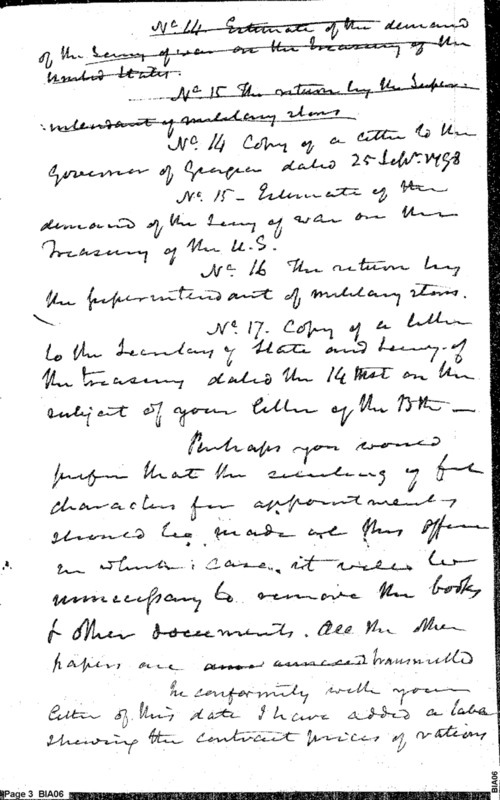 No 14 Estimate of the demand
of the Secy of war on the Treasury of the
United States.
No 15 The return by the Super-
intendant of military stores
No. 14 Copy of a letter to the
Governor of Georgia dated 25 Sept. 1798
No. 15 - Estimate of the
demand of the Secy of war on the
Treasury of the U.S.
No 16 The return by
the superintendant of military stores.
No 17. Copy of a letter
to the Secretary of State and Secy. of
the Treasury dated the 14 Inst on the
subject of your letter of the 13th —
Perhaps you would
prefer that the selecting of fit
characters for appointments
should be made at this office
in which case, it will be
unnecessary to remove the books
& other documents. All the other
papers are annexed transmitted
In conformity with your
letter of this date I have added a table
shewing the contract prices of rations
Page 3 BIA06
BIA06